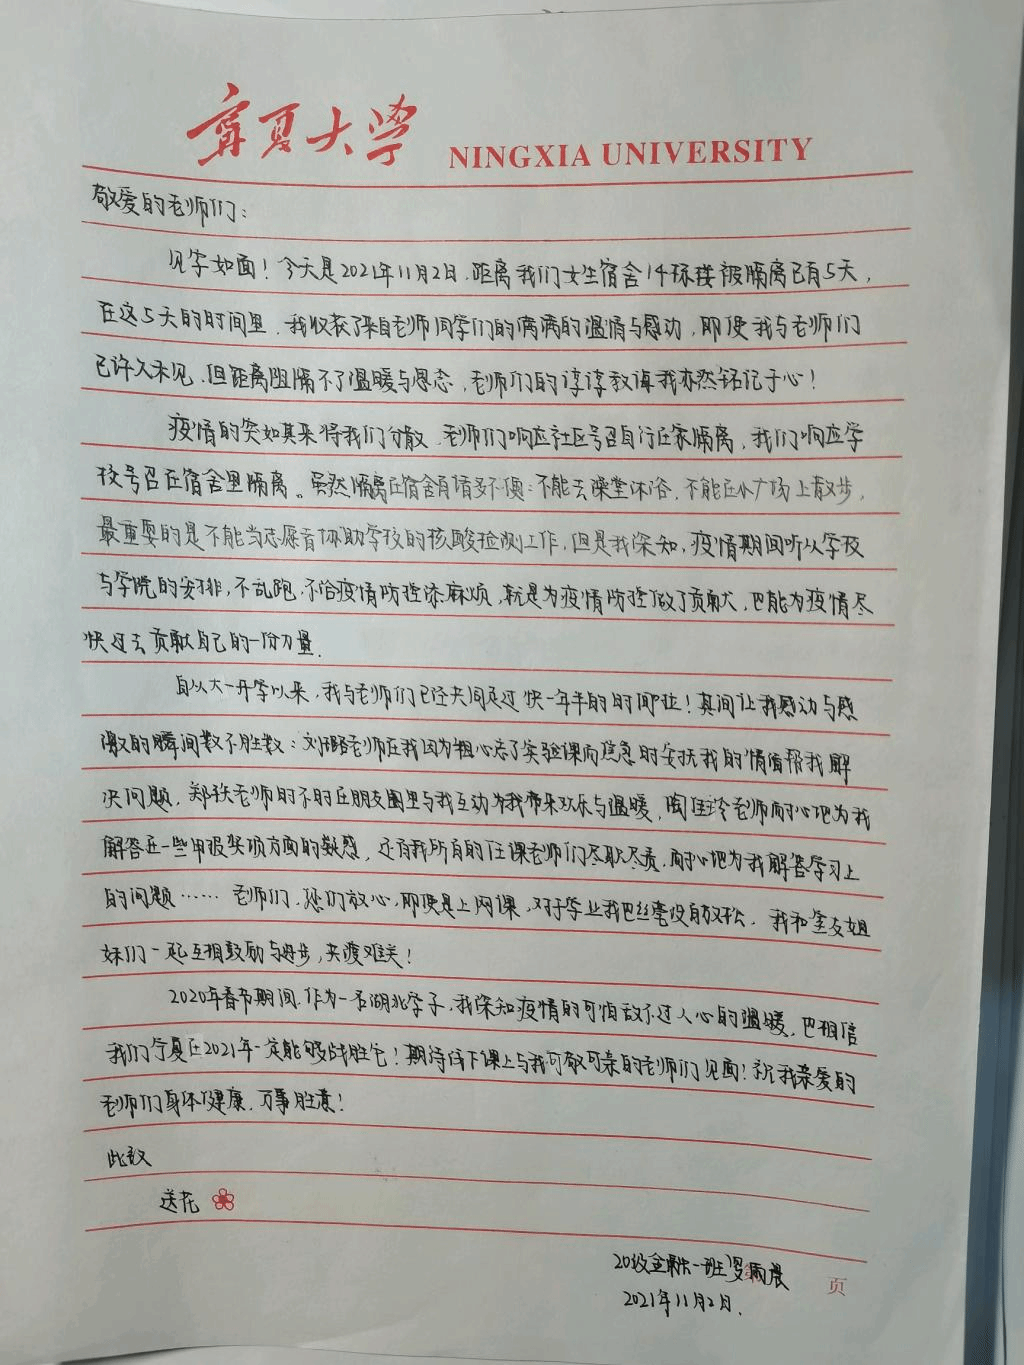 宁夏大学 NINGXIA UNIVERSITY
敬爱的老师们：
见字如面！今天是2021年11月2日，距离我们女生宿舍14栋楼被隔离已有5天，
在这5天的时间里，我收获了来自老师同学们的满满的温情与感动，即使我与老师们
已许久未见，但距离阻隔不了温暖与思念，老师们的谆谆教诲我亦然铭记于心！
疫情的突如其来将我们分散，老师们响应社区号召自行在家隔离，我们响应学
校号召在宿舍里隔离。虽然隔离在宿舍有诸多不便：不能去澡堂沐浴，不能在小广场上散步，
最重要的是不能当志愿者协助学校的核酸检测工作，但是我深知，疫情期间听从学校
与学院的安排，不乱跑，不给疫情防控添麻烦，就是为疫情防控做了贡献，也能为疫情尽
快过去贡献自己的一份力量.
自从大一开学以来，我与老师们已经共同走过快一年半的时间啦！其间让我感动与感
激的瞬间数不胜数：刘璐老师在我因为粗心忘了实验课而焦急时安抚我的情绪帮我解
决问题，郑轶老师时不时在朋友圈里与我互动为我带来欢乐与温暖，陶佳玲老师耐心地为我
解答在一些申报奖项方面的疑惑，还有我所有的任课老师们尽职尽责，耐心地为我解答学习上
的问题……老师们，您们放心，即使是上网课，对于学业我也丝毫没有放松，我和室友姐
妹们一起互相鼓励与进步，共渡难关！
2020年春节期间，作为一名湖北学子，我深知疫情的可怕敌不过人心的温暖，也相信
我们宁夏在2021年一定能够战胜它！期待线下课上与我可敬可亲的老师们见面！祝我亲爱的
老师们身体健康，万事胜意！
此致
送花
20级金融一班 雨晨
第 页
2021年11月2日.